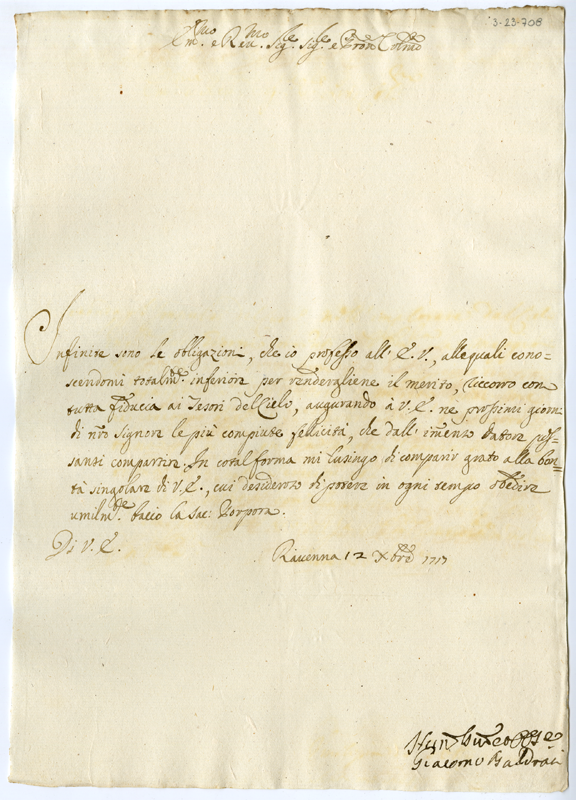 3-23-708
Em.mo e Rev.mo Sig.re Sig.re e Pron Colmo
Infinite sono le obligazioni, che io professo all' E.V., alle quali cono=
scendomi totalmte. inferiore per rendergliene il merito, ricorro con
tutta fiducia ai Tesori del Cielo, augurando à V.E. ne prossimi giorni
di nro Signore le più compiute felicità, che dall' imenso datore pos=
sansi compartire. In cotal forma mi lusingo di comparir grato alla bon=
tà singolare di V.E., cui desideroso di potere in ogni tempo obedire
umilmte. bacio la Sac: Porpora.
Di V.E.
Ravenna 12 Xbre 1717
Giacomo Baldrati